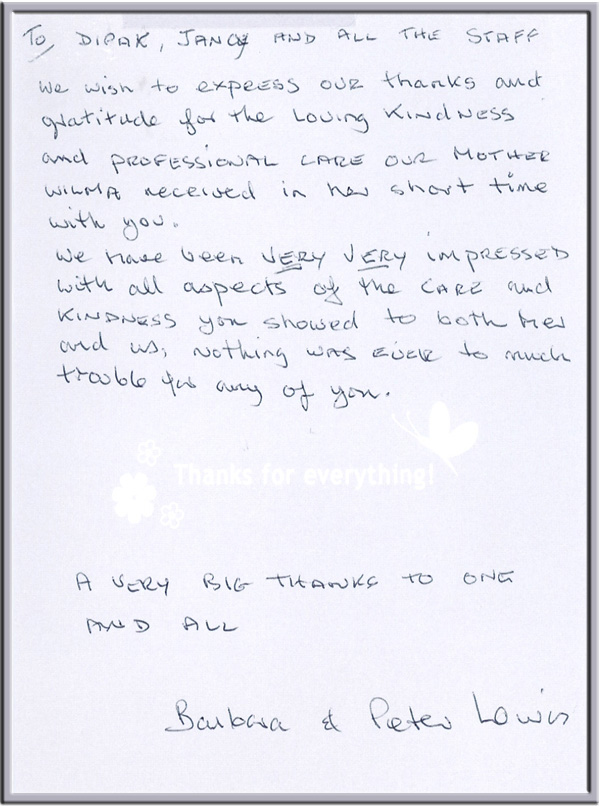 To DIPAK, JANCY AND ALL THE STAFF
we wish to express our thanks and
gratitude for the Loving KindNESS
and PROFESSIONAL CARE OUR MOTHER
WILMA received in her short time
with you.
We have been VERY VERY IMPRESSED
with all aspects of the CARE and
KINDNESS you showed to both her
and us, nothing was EVER to much
trouble for any of you.
Thanks for everything!
A VERY BIG THANKS TO ONE
AND ALL
Barbara & Peter